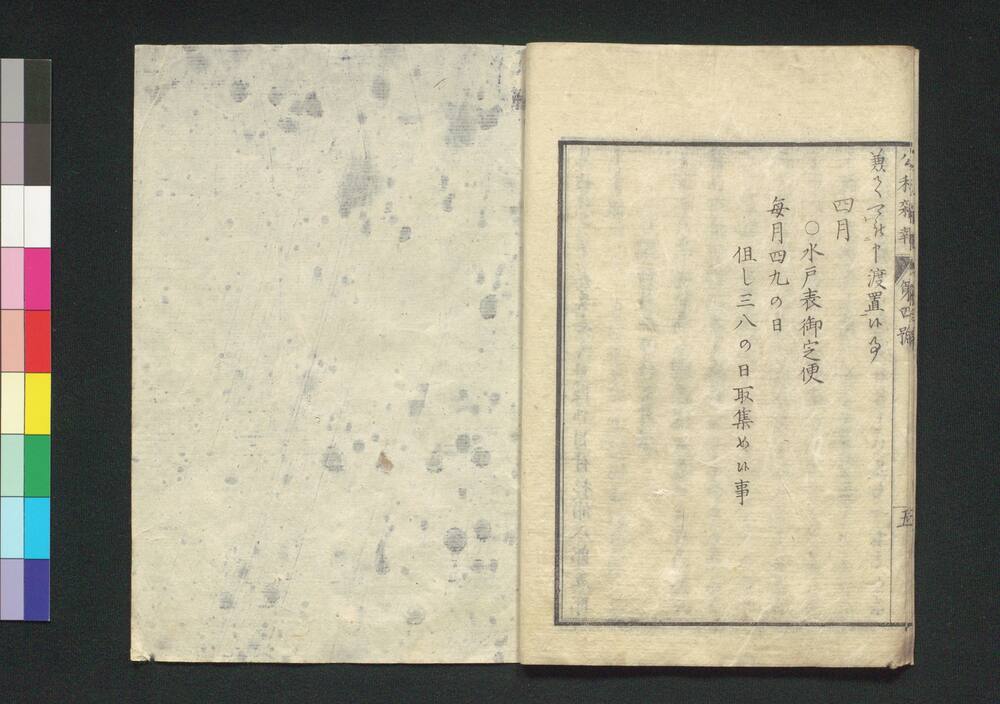 兼て可申渡置候事
四月
○水戸表御定便
毎月四九の日
但し三八の日取集め候事
公私雑報
第四號
五